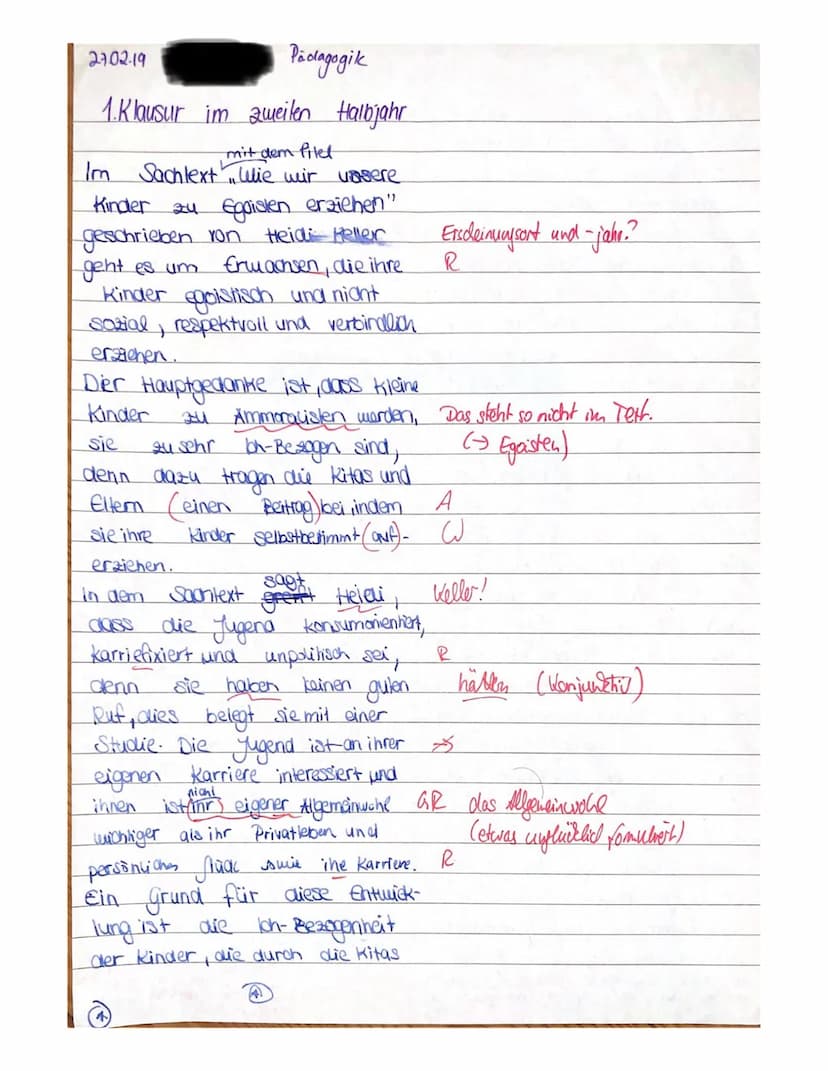 27.02.19 Pädagogik
1.Klausur im zweiten Halbjahr
mit dem Titel
Im Sachtext „Wie wir unsere
Kinder zu Egoisten erziehen"
geschrieben von Heidi Keller Erscheinungsort und -jahr?
geht es um Erwachsen, die ihre R
Kinder egoistisch und nicht
sozial, respektvoll und verbindlich
erziehen.
Der Hauptgedanke ist, dass kleine
Kinder zu Ammoralisten werden, Das steht so nicht im Text.
sie zu sehr Ich-Bezogen sind, (→ Egoisten)
denn dazu tragen die Kitas und
Eltern (einen Beitrag) bei, indem A
sie ihre Kinder selbstbestimmt (auf)- W
erziehen.
sagt
In dem Sachtext Heidi, Keller!
dass die Jugend konsumorientiert,
karriefixiert und unpolitisch sei, R
denn sie haben keinen guten hätten (Konjunktiv)
Ruf, dies belegt sie mit einer
Studie. Die Jugend ist an ihrer
eigenen Karriere interessiert und
nicht
ihnen ist (ihr) eigener Allgemeinwohl GR das Allgemeinwohl
wichtiger als ihr Privatleben und (etwas unglücklich formuliert)
persönliches Glück sowie ihe Karriere. R
Ein Grund für diese Entwick-
lung ist die Ich-Bezogenheit
der Kinder, die durch die Kitas
A
1